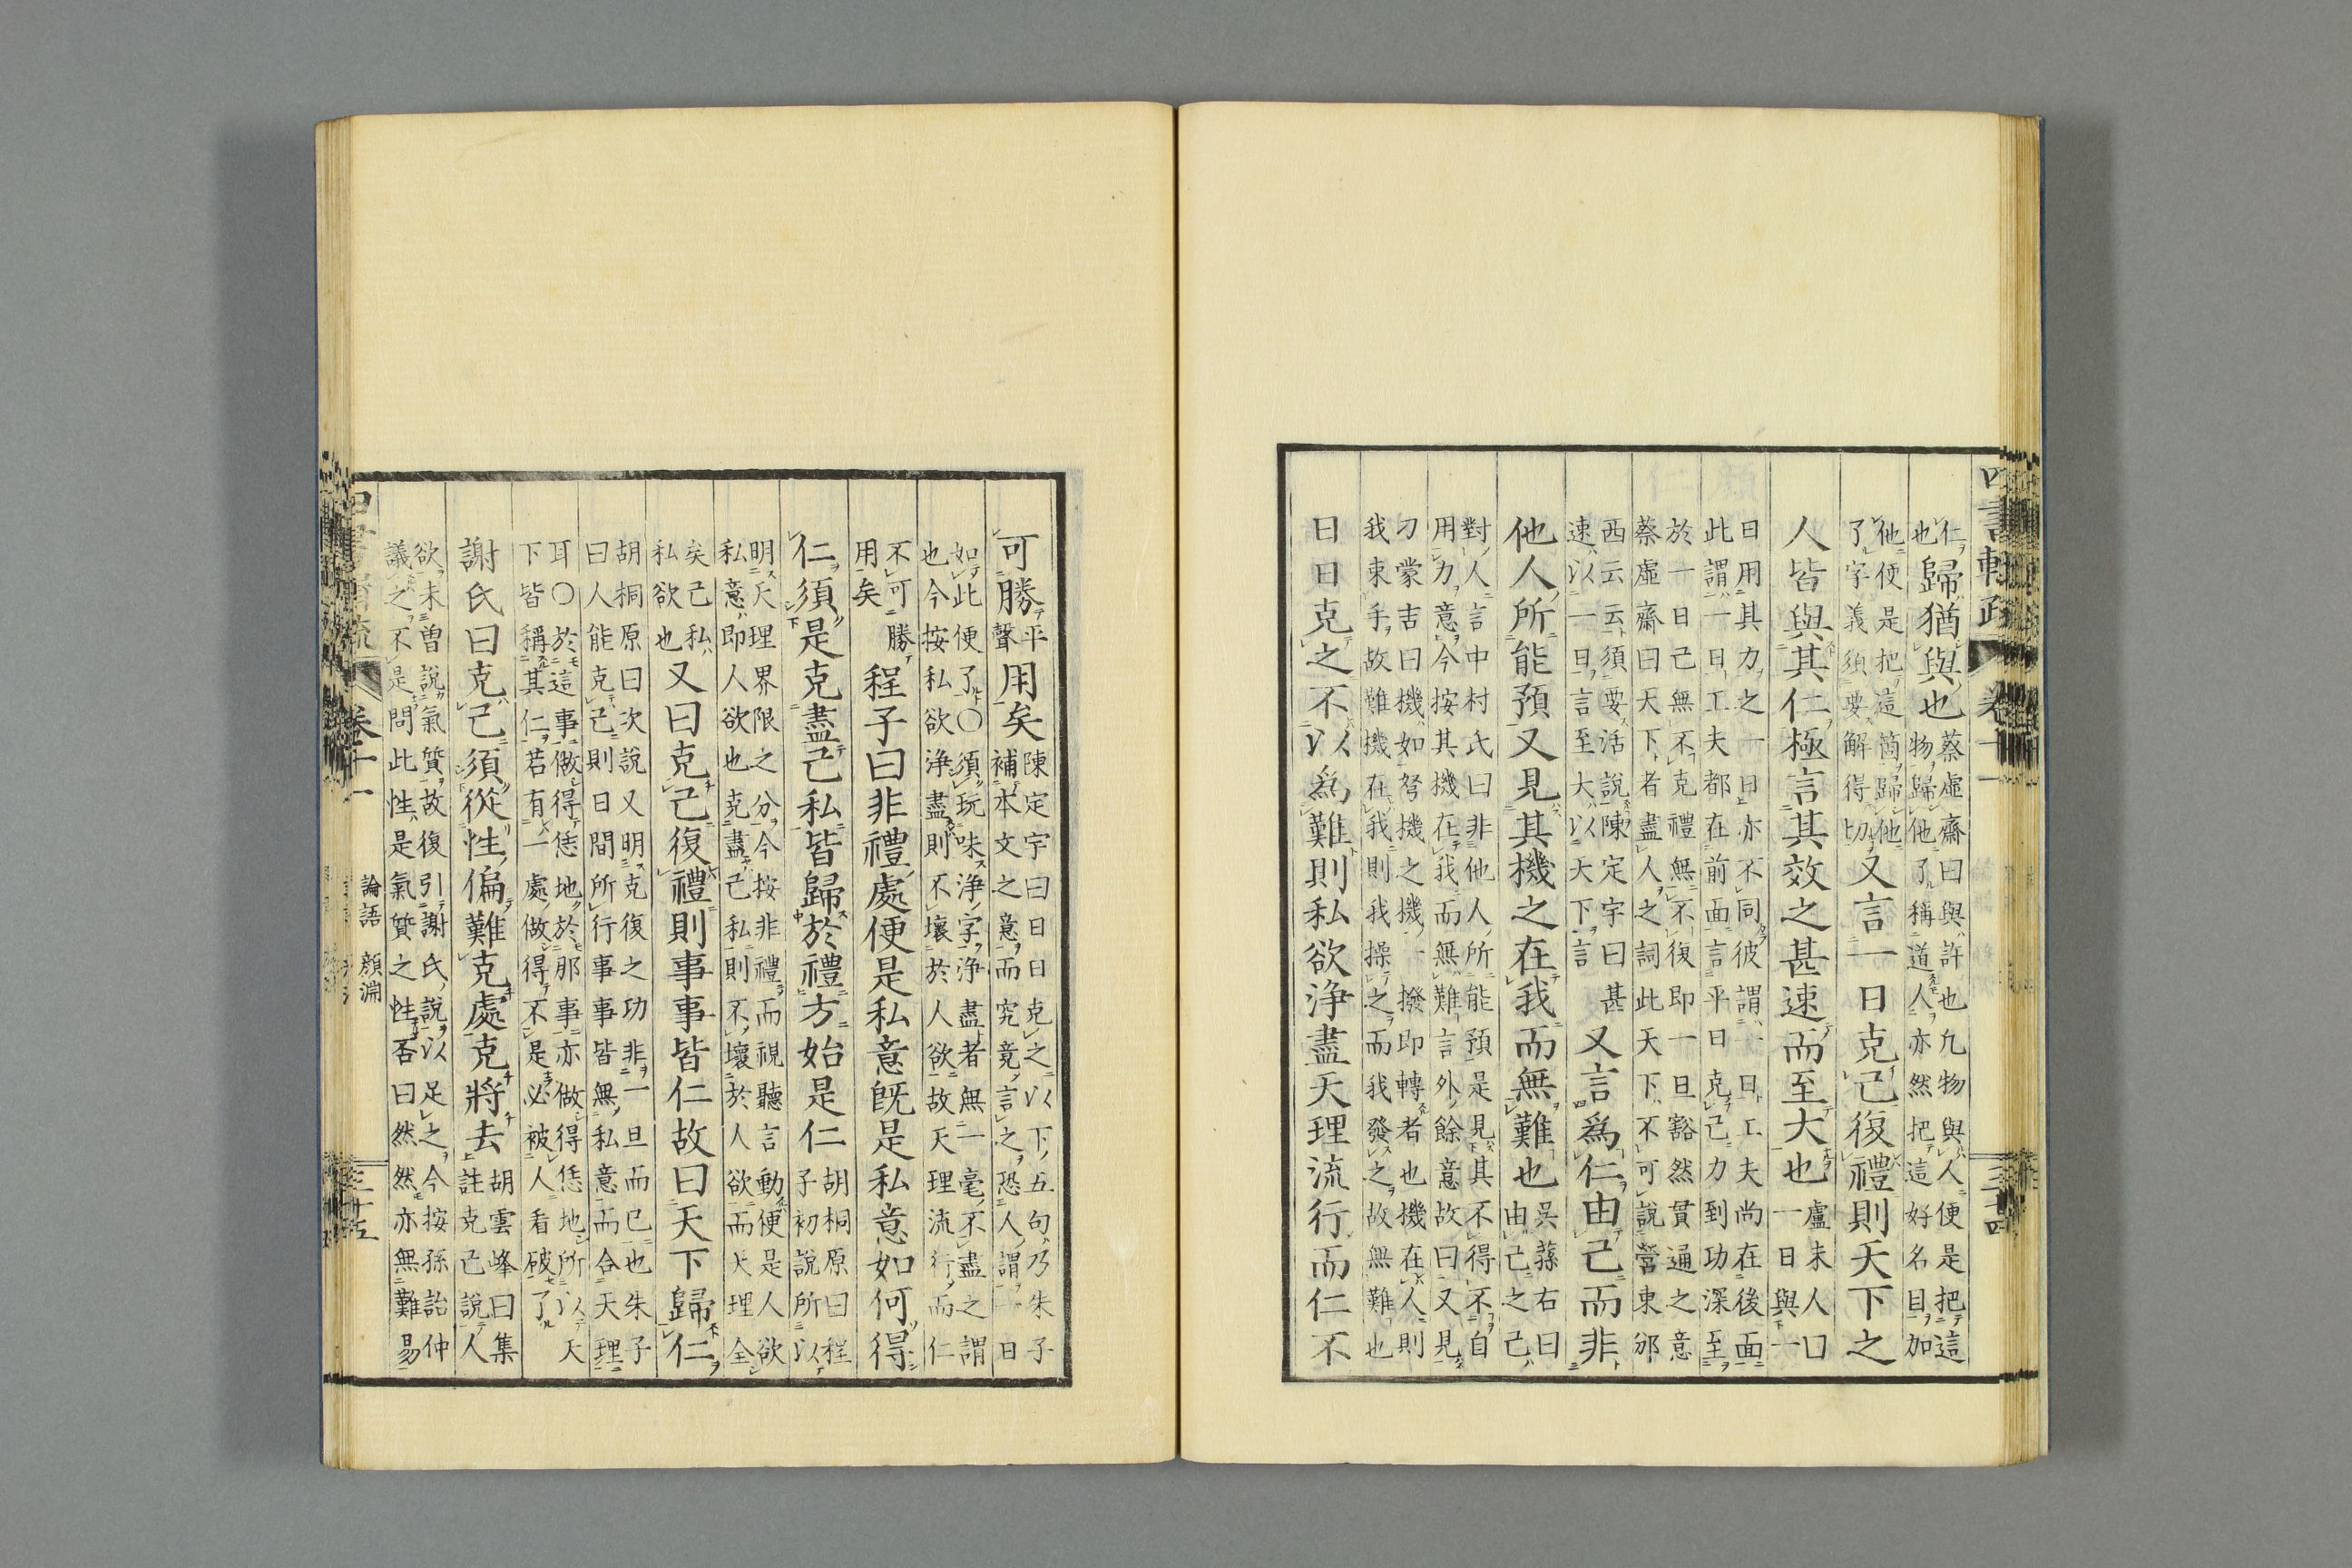 四書輯疏 卷十一 三十四
仁
也
歸猶與也
蔡虛齋曰與許也凡物與人便是把這
物歸他了稱道人亦然把這好名目加
他便是把這箇歸他
了字義須要解得切
又言一日克己復禮則天下之
人皆與其仁極言其效之甚速而至大也
盧未人曰
一日與一
日用其力之一日亦不同彼謂一日工夫尚在後面
此謂一日工夫都在前面言平日克己力到功深至
於一日己無不克禮無不復即一旦豁然貫通之意
蔡虛齋曰天下者盡人之詞此天下不可說營東邠
西云云須要活說陳定宇曰甚
速以一日言至大以天下言
又言爲仁由己而非
他人所能預又見其機之在我而無難也
吳蓀右曰
由己之己
對人言中村氏曰非他人所能預是見其不得不自
用力意今按其機在我而無難言外餘意故曰又見
刁蒙吉曰機如弩機之機一撥即轉者也機在人則
我束手故難機在我則我操之而我發之故無難也
日日克之不以爲難則私欲淨盡天理流行而仁不
可勝
平
聲
用矣
陳定宇曰日日克之以下五句乃朱子
補本文之意而究竟言之恐人謂一日
如此便了〇須玩味淨字淨盡者無一毫不盡之謂
也今按私欲淨盡則不壞於人欲故天理流行而仁
不可勝
用矣
程子曰非禮處便是私意既是私意如何得
仁須是克盡己私皆歸於禮方始是仁
胡桐原曰程
子初說所以
明天理界限之分今按非禮而視聽言動便是人欲
私意即人欲也克盡己私則不壞於人欲而天理全
矣己私
私欲也
又曰克己復禮則事事皆仁故曰天下歸仁
胡桐原曰次說又明克復之功非一旦而已也朱子
曰人能克己則日間所行事事皆無私意而合天理
耳〇於這事做得恁地於那事亦做得恁地所以天
下皆稱其仁若有一處做得不是必被人看破了
謝氏曰克己須從性偏難克處克將去
胡雲峰曰集
註克己說人
欲未曾說氣質故復引謝氏說以足之今按孫詒仲
議之不是問此性是氣質之性否曰然然亦無難易
卷十一 論語 顏淵 三十五